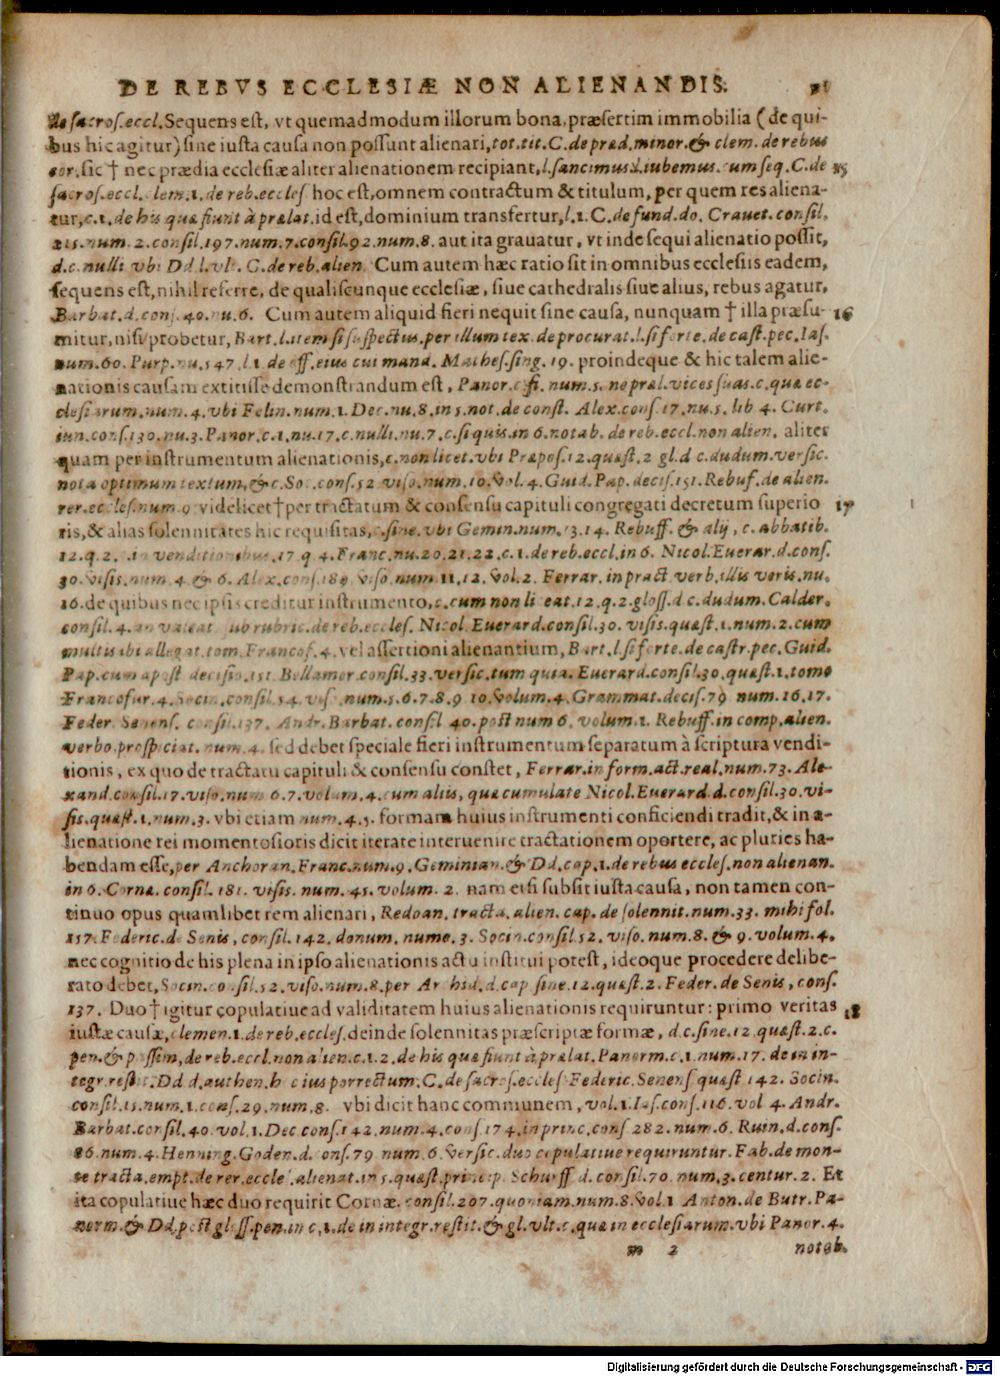 DE REBVS ECCLESIÆ NON ALIENANDIS. 91
de sacros.eccl. Sequens est, vt quemadmodum illorum bona, præsertim immobilia (de qui-
bus hic agitur) sine iusta causa non possunt alienari, tot.tit.C.de præd.minor.& clem.de rebus
eor. sic † nec prædia ecclesiæ aliter alienationem recipiant, l.sancimus.l.iubemus.cum seq.C.de 15
sacros.eccl. clem.1. de reb.eccles. hoc est, omnem contractum & titulum, per quem res aliena-
tur, c.1. de his quæ fiunt à prælat. id est, dominium transfertur, l.1.C.de fund.do. Crauet. consil.
215.num.2.consil.197.num.7.consil.92.num.8. aut ita grauatur, vt inde sequi alienatio possit,
d.c.nulli vbi Dd.l.vlt. C.de reb.alien. Cum autem hæc ratio sit in omnibus ecclesiis eadem,
sequens est, nihil referre, de qualiscunque ecclesiæ, siue cathedralis siue alius, rebus agatur,
Barbat.d.cons.40.nu.6. Cum autem aliquid fieri nequit sine causa, nunquam † illa præsu- 16
mitur, nisi probetur, Bart.l.item si suspectus.per illum tex.de procurat.l.si forte.de cast.pec.Ias.
num.60. Purp.nu.547.l.1.de off.eius cui mand. Mathes.sing. 19. proindeque & hic talem alie-
nationis causam extitisse demonstrandum est, Panor.c.fi. num.5. ne præl.vices suas.c.quæ ec-
clesiarum.num.4. vbi Felin.num.1. Dec.nu.8.in 5.not.de const. Alex.cons.17.nu.5. lib 4. Curt.
iun.cons.130.nu.3. Panor.c.1.nu.17.c.nulli.nu.7.c.si quis.in 6.notab. de reb.eccl.non alien. aliter
quam per instrumentum alienationis, c.non licet.vbi Præpos.12.quæst.2 gl.d c.dudum.versic.
nota optimum textum,& c.Soc.cons.52 viso.num.10.Vol.4. Guid.Pap.decis.151.Rebuf.de alien.
rer.eccles.num.9 videlicet † per tractatum & consensu capituli congregati decretum superio 17
ris, & alias solennitates hic requisitas, c.sine.vbi Gemin.num.13.14. Rebuff.& alij, c.abbatib.
12.q.2. in venditionibus.17.q 4. Franc.nu.20.21.22.c.1.de reb.eccl.in 6. Nicol.Euerar.d.cons.
30.visis.num 4 & 6. Alex.cons.189.viso.num 11.12.Vol.2. Ferrar.in pract verb.illis veris.nu.
16. de quibus nec ipsis creditur instrumento, c.cum non liceat.12.q.2.gloss.d c.dudum.Calder.
consil.4. an valeat sub rubric.de reb.eccles. Nicol.Euerard.consil.30. visis.quæst.1.num.2.cum
multis ibi allegat.tom.Francof.4. vel assertioni alienantium, Bart.l.si forte.de castr.pec.Guid.
Pap.cum apost decisio.151. Bellamer.consil.33.versic.tum quia. Euerard.consil.30.quæst.1.tomo
Francofur.4.Socin.consil.54.viso num.5.6.7.8.9 10.Volum.4.Grammat.decis.79 num.16.17.
Feder. Senens. consil.137. Andr.Barbat.consil 40.post num 6. volum.1. Rebuff.in comp.alien.
verbo.prospiciat.num.4. sed debet speciale fieri instrumentum separatum à scriptura vendi-
tionis, ex quo de tractatu capituli & consensu constet, Ferrar.in form.act.real.num.73. Ale-
xand.consil.17.viso.num 6.7.volum.4.cum aliis, quæ cumulate Nicol.Euerard.d.consil.30.vi-
sis.quæst.1.num.3. vbi etiam num.4.5. formam huius instrumenti conficiendi tradit, & in a-
lienatione rei momentosioris dicit iterate interuenire tractationem oportere, ac pluries ha-
bendam esse, per Anchoran. Franc.num.9. Geminian.& Dd.cap.1.de rebus eccles.non alienan.
in 6. Corne. consil. 181. visis. num. 45. volum. 2. nam etsi subsit iusta causa, non tamen con-
tinuo opus quamlibet rem alienari, Redoan. tracta. alien. cap. de solennit.num.33. mihi fol.
157. Federic.de Senis, consil. 142. donum. nume. 3. Socin.consil.52. viso. num.8. & 9.volum.4.
nec cognitio de his plena in ipso alienationis actu institui potest, ideoque procedere delibe-
rato debet, Socin.consil.52.viso.num.8.per Archid.d.cap sine.12.quæst.2. Feder. de Senis, cons.
137. Duo † igitur copulatiue ad validitatem huius alienationis requiruntur: primo veritas 18
iustæ causæ, clemen.1.de reb.eccles. deinde solennitas præscriptæ formæ, d.c.sine.12.quæst.2.c.
pen.& passim, de reb.eccl.non alien.c.1.2.de his quæ fiunt à prælat. Panorm.c.1.num.17. de in in-
tegr.restit. Dd d.authen.hoc ius porrectum.C.de sacros.eccles Federic.Senens quæst 142. Socin.
consil.15.num.1.cons.29.num.8. vbi dicit hanc communem, vol.1.Ias.cons.116.vol 4. Andr.
Barbat.consil.40.vol.1.Dec cons.142.num.4.cons 174.in princ.cons 282.num.6. Ruin.d.cons.
86.num.4.Henning.Goden.d.cons.79 num 6.Versic.duo copulatiue requiruntur. Fab.de mon-
te tracta.empt.de rer.eccle.alienat.in 5.quæst.princip. Schurff d. consil.70. num.3.centur.2. Et
ita copulatiue hæc duo requirit Cornæ. consil.207.quoniam.num.8.Vol.1 Anton.de Butr.Pa-
norm.& Dd.post gloss.pen.in c,1.de in integr.restit.& gl.vlt.c.quæ in ecclesiarum.vbi Panor.4.
m 2 notab.
Digitalisierung gefördert durch die Deutsche Forschungsgemeinschaft - DFG